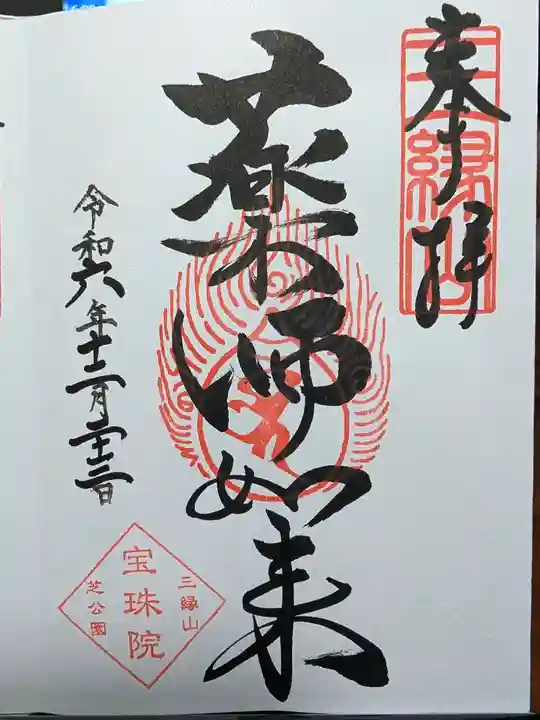 奉拝
三縁山
薬師如来
令和六年十二月二十二日
三縁山
宝珠院
芝公園